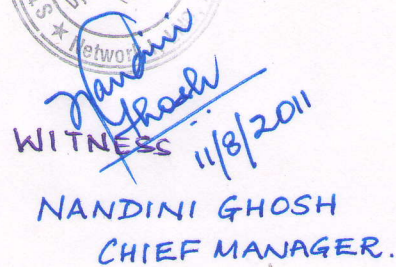 Network
Nandini
Ghosh
WITNESS 11/8/2011
NANDINI GHOSH
CHIEF MANAGER.